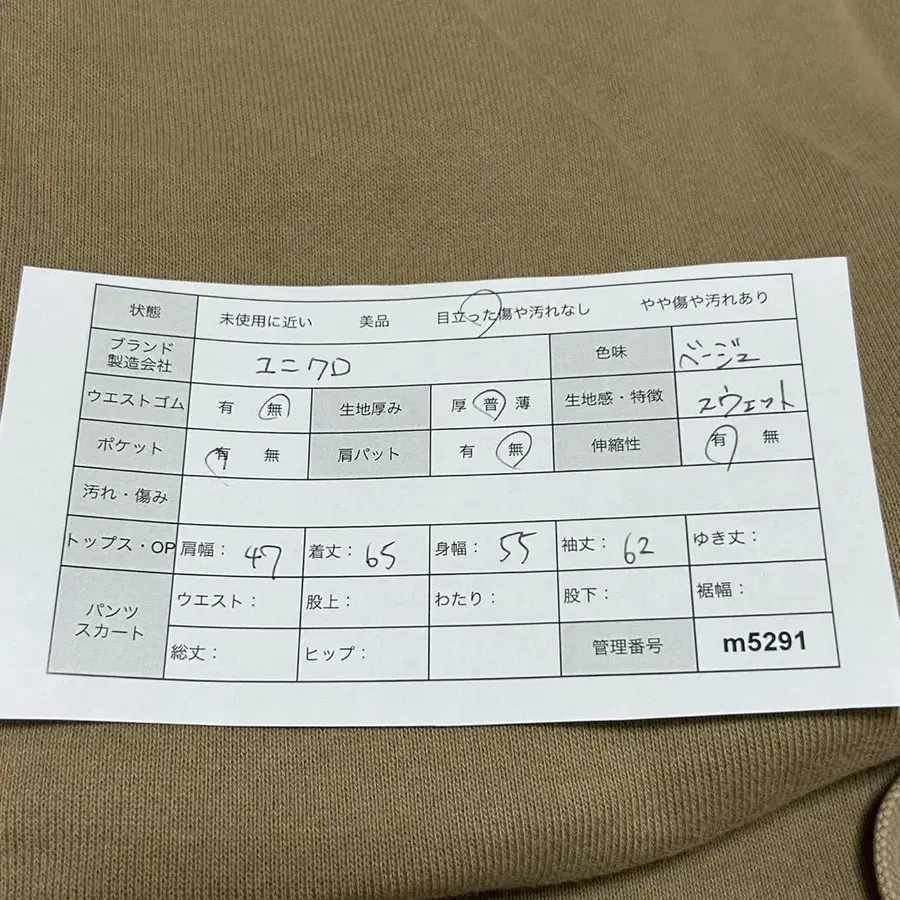 状態 未使用に近い 美品 目立った傷や汚れなし やや傷や汚れあり
ブランド
製造会社 ユニクロ 色味 ベージュ
ウエストゴム 有 無 生地厚み 厚 普 薄 生地感・特徴 スウェット
ポケット 有 無 肩パット 有 無 伸縮性 有 無
汚れ・傷み
トップス・OP 肩幅： 47 着丈： 65 身幅： 55 袖丈： 62 ゆき丈：
パンツ
スカート ウエスト： 股上： わたり： 股下： 裾幅：
総丈： ヒップ： 管理番号 m5291